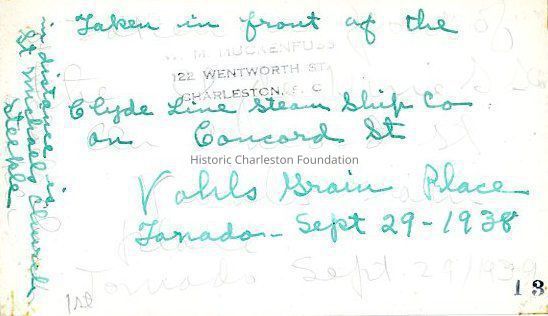 Taken in front of the
M. HUCKENFUSS
122 WENTWORTH ST.
CHARLESTON, S. C
Clyde Line Steam Ship Co
on Concord St
Historic Charleston Foundation
Vohls Grain Place
Tanado - Sept 29-1938
Tornado Sept. 29/1939
1st
13
in distance is
St Michaels Church
Steeple